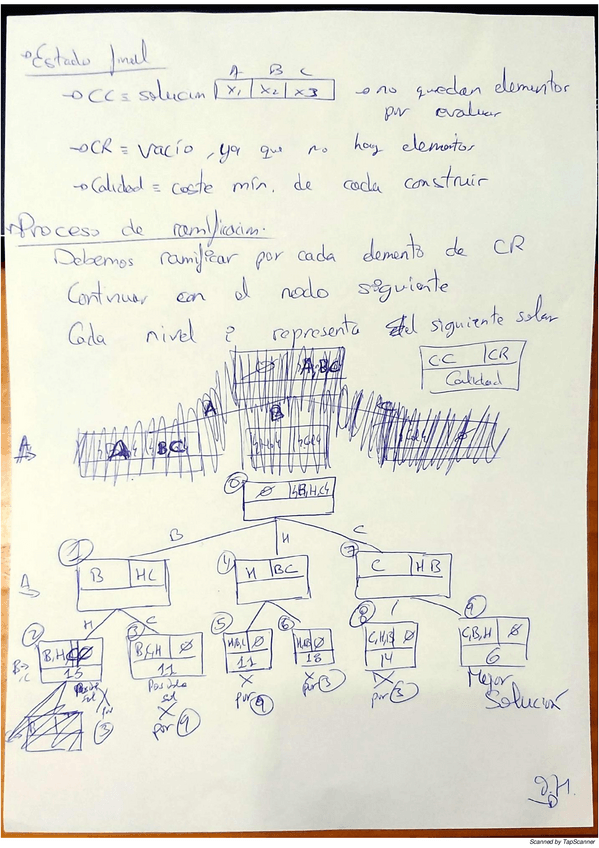 → Estado final
A B C
→ CC ≡ solución x1 x2 x3 → no quedan elementos
por evaluar
→ CR ≡ vacío, ya que no hay elementos
→ Calidad ≡ coste mín. de cada construir
→ Proceso de ramificación.
Debemos ramificar por cada elemento de CR
Continuar con el nodo siguiente
Cada nivel i representa el siguiente solar
CC CR
Calidad
∅ A,B,C
A B
A BC
0 ∅ {B,H,C}
B H C
1 B HC
4 H BC
7 C HB
A
H C
2 B,H,C ∅ 15
3 B,C,H ∅ 11
5 H,B,C ∅ 11
6 ∅ 18
8 C,H,B ∅ 14
9 C,B,H ∅ 6
B
Posible sol X por 3
Posible sol X por 9
X por 9
X por 3
X por 3
Mejor
Solución
Scanned by TapScanner